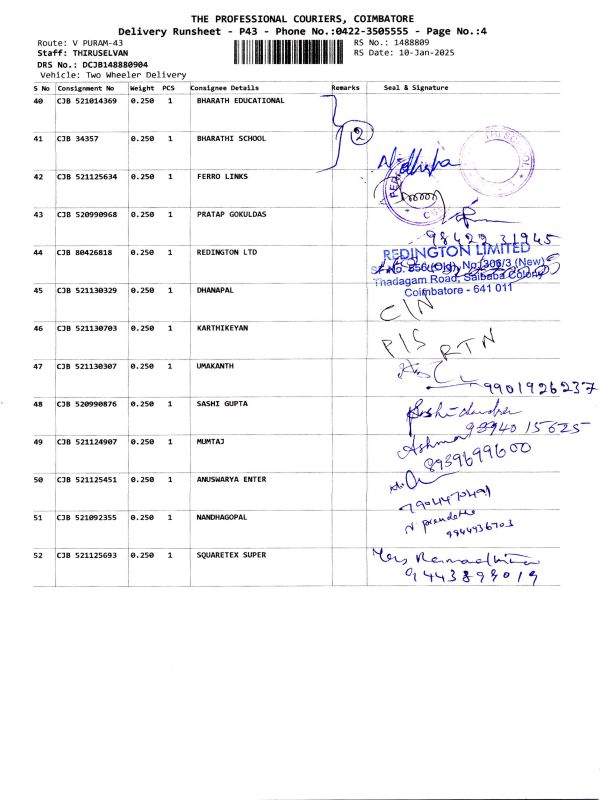 THE PROFESSIONAL COURIERS, COIMBATORE
Delivery Runsheet - P43 - Phone No.:0422-3505555 - Page No.:4
Route: V PURAM-43
RS No.: 1488809
Staff: THIRUSELVAN
RS Date: 10-Jan-2025
DRS No.: DCJB148880904
Vehicle: Two Wheeler Delivery
S No Consignment No Weight PCS Consignee Details Remarks Seal & Signature
40 CJB 521014369 0.250 1 BHARATH EDUCATIONAL
2
41 CJB 34357 0.250 1 BHARATHI SCHOOL
42 CJB 521125634 0.250 1 FERRO LINKS
43 CJB 520990968 0.250 1 PRATAP GOKULDAS
98429 31945
44 CJB 80426818 0.250 1 REDINGTON LTD
REDINGTON LIMITED
S.F No. 856 (Old) No. 306/3 (New)
Thadagam Road, Saibaba Colony
Coimbatore - 641 011
45 CJB 521130329 0.250 1 DHANAPAL
C/N
46 CJB 521130703 0.250 1 KARTHIKEYAN
P/S RTN
47 CJB 521130307 0.250 1 UMAKANTH
9901926237
48 CJB 520990876 0.250 1 SASHI GUPTA
9994015625
49 CJB 521124907 0.250 1 MUMTAJ
Ashma
8939699600
50 CJB 521125451 0.250 1 ANUSWARYA ENTER
51 CJB 521092355 0.250 1 NANDHAGOPAL
9944936703
52 CJB 521125693 0.250 1 SQUARETEX SUPER
9443899019